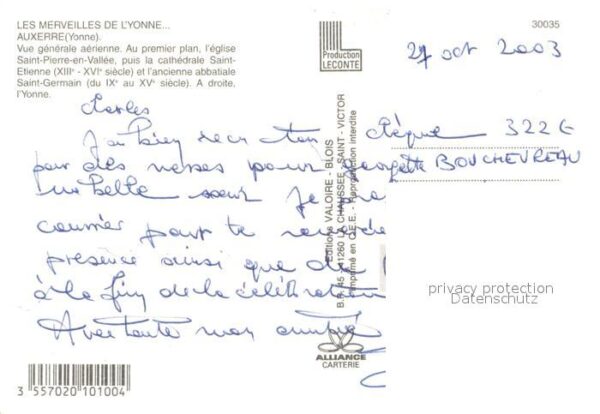 LES MERVEILLES DE L'YONNE...
AUXERRE(Yonne).
Vue générale aérienne. Au premier plan, l'église
Saint-Pierre-en-Vallée, puis la cathédrale Saint-
Etienne (XIIIᵉ - XVIᵉ siècle) et l'ancienne abbatiale
Saint-Germain (du IXᵉ au XVᵉ siècle). A droite,
l'Yonne.
30035
Production
LECONTE
27 oct 2003
Charles
J'ai bien reçu ton chèque 322€
pour des messes pour Georgette BOUCHEVREAU
ma belle soeur je
courrier pour te
présence ainsi que
à la fin de la célébration
Avec toute mon amitié
Editions VALOIRE - BLOIS
B.P. 45 - 41260 LA CHAUSSEE SAINT - VICTOR
Imprimé en C.E.E. - Reproduction interdite
privacy protection
Datenschutz
ALLIANCE
CARTERIE
3 557020 101004